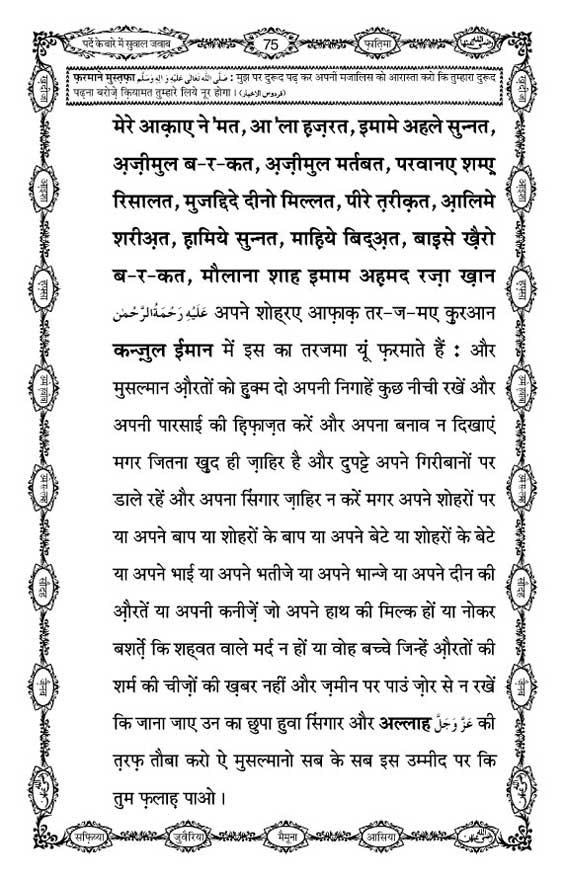 पर्दे के बारे में सुवाल जवाब
75
फ़ातिमा
फ़रमाने मुस्तफ़ा صَلَّی اللہ تَعَالٰی عَلَیْہِ وَاٰلِہٖ وَسَلَّم : मुझ पर दुरूद पढ़ कर अपनी मजालिस को आरास्ता करो कि तुम्हारा दुरूद
पढ़ना बरोज़े क़ियामत तुम्हारे लिये नूर होगा । (فردوس الاخبار)
मेरे आक़ाए ने'मत, आ'ला ह़ज़रत, इमामे अहले सुन्नत,
अ़ज़ीमुल ब-र-कत, अ़ज़ीमुल मर्तबत, परवानए शम्ए़
रिसालत, मुजद्दिदे दीनो मिल्लत, पीरे त़रीक़त, आ़लिमे
शरीअ़त, ह़ामिये सुन्नत, माह़िये बिद्अ़त, बाइसे ख़ैरो
ब-र-कत, मौलाना शाह इमाम अह़मद रज़ा ख़ान
عَلَيْهِ رَحْمَةُ الرَّحْمٰن अपने शोहरए आफ़ाक़ तर-ज-मए क़ुरआन
कन्ज़ुल ईमान में इस का तरजमा यूं फ़रमाते हैं : और
मुसल्मान औ़रतों को ह़ुक्म दो अपनी निगाहें कुछ नीची रखें और
अपनी पारसाई की ह़िफ़ाज़त करें और अपना बनाव न दिखाएं
मगर जितना ख़ुद ही ज़ाहिर है और दुपट्टे अपने गिरीबानों पर
डाले रहें और अपना सिंगार ज़ाहिर न करें मगर अपने शोहरों पर
या अपने बाप या शोहरों के बाप या अपने बेटे या शोहरों के बेटे
या अपने भाई या अपने भतीजे या अपने भान्जे या अपने दीन की
औ़रतें या अपनी कनीज़ें जो अपने हाथ की मिल्क हों या नोकर
बशर्ते़ कि शह्वत वाले मर्द न हों या वोह बच्चे जिन्हें औ़रतों की
शर्म की चीज़ों की ख़बर नहीं और ज़मीन पर पाउं ज़ोर से न रखें
कि जाना जाए उन का छुपा हुवा सिंगार और अल्लाह عَزَّ وَجَلَّ की
त़रफ़ तौबा करो ऐ मुसल्मानो सब के सब इस उम्मीद पर कि
तुम फ़लाह़ पाओ ।
सफ़िय्या
जुवैरिया
मैमूना
आसिया